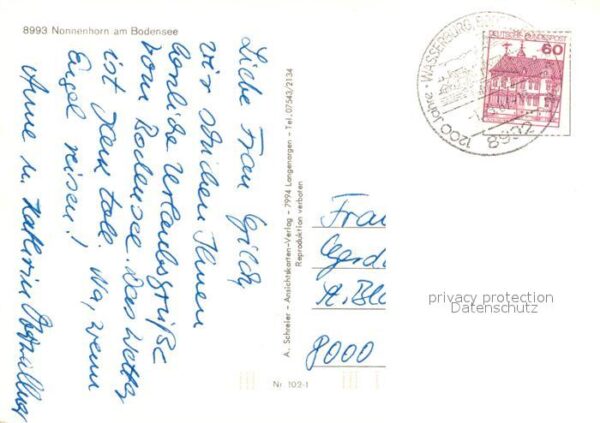 8993 Nonnenhorn am Bodensee
Liebe Frau Gilch,
wir schicken Ihnen
herzliche Urlaubsgrüße
vom Bodensee. Das Wetter
ist ganz toll. Na, wenn
Engel reisen!
Anne u. Kathrin
A. Schreier - Ansichtskarten-Verlag - 7994 Langenargen - Tel. 07543/2134
Reproduktion verboten
Nr. 102-1
Frau
Gerda
A. Ble
8000
DEUTSCHE BUNDESPOST
60
WASSERBURG, BO
1200 Jahre
8992
privacy protection
Datenschutz